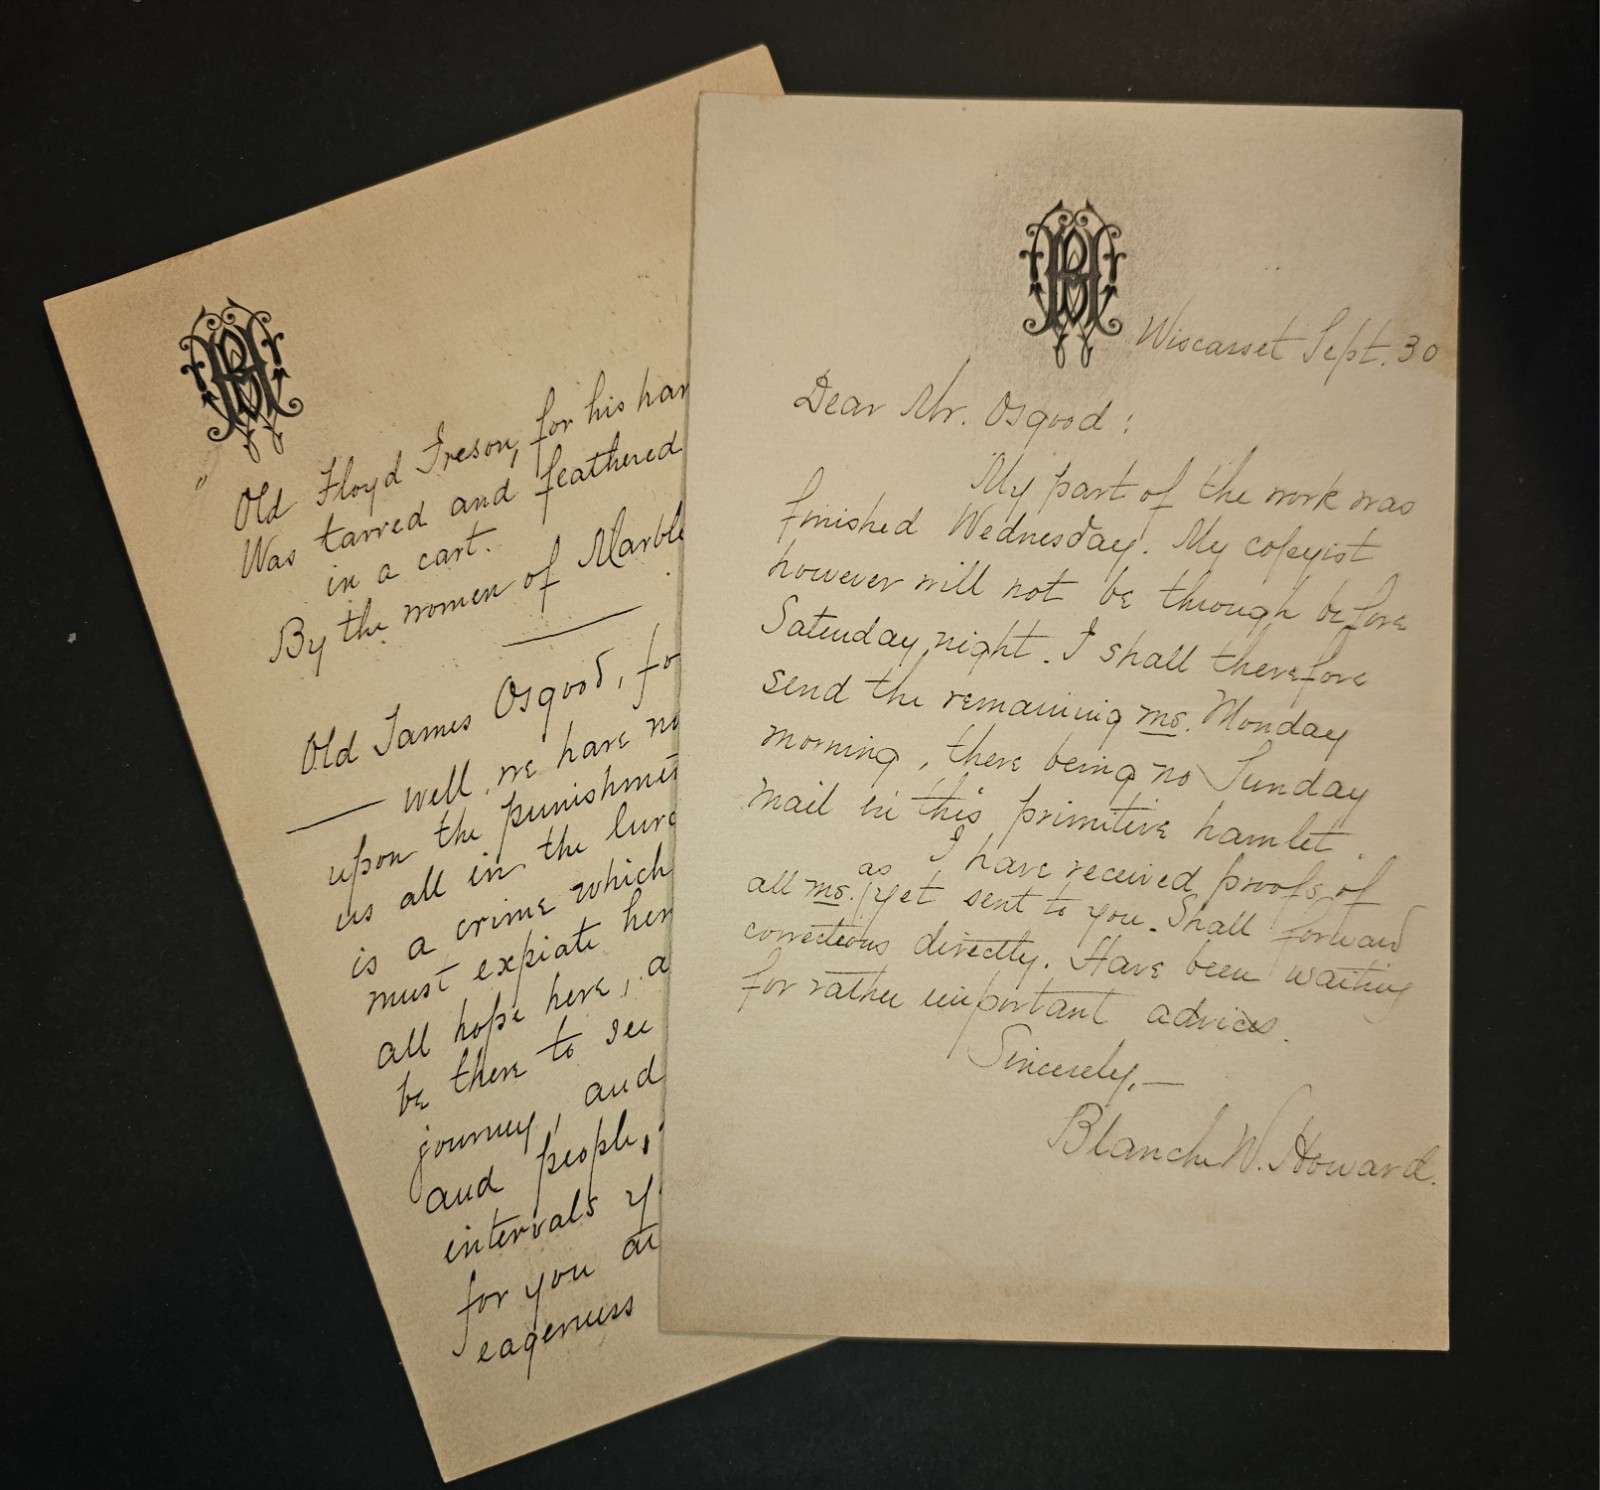 " Old Floyd Ireson, for his har
Was tarred and feathered
in a cart.
By the women of Marble
Old James Osgood, fo
— well, we have no
upon the punishme
us all in the lurc
is a crime which
must expiate her
all hope here, a
be there to see
journey, and
and people,
intervals y
for you au
eagerness
BH
Wiscasset Sept. 30
Dear Mr. Osgood:
My part of the work was
finished Wednesday. My copyist
however will not be through before
Saturday night. I shall therefore
send the remaining ms. Monday
morning, there being no Sunday
mail in this primitive hamlet.
I have received proofs of
all ms. as yet sent to you. Shall forward
corrections directly. Have been waiting
for rather important advices.
Sincerely,—
Blanche W. Howard.